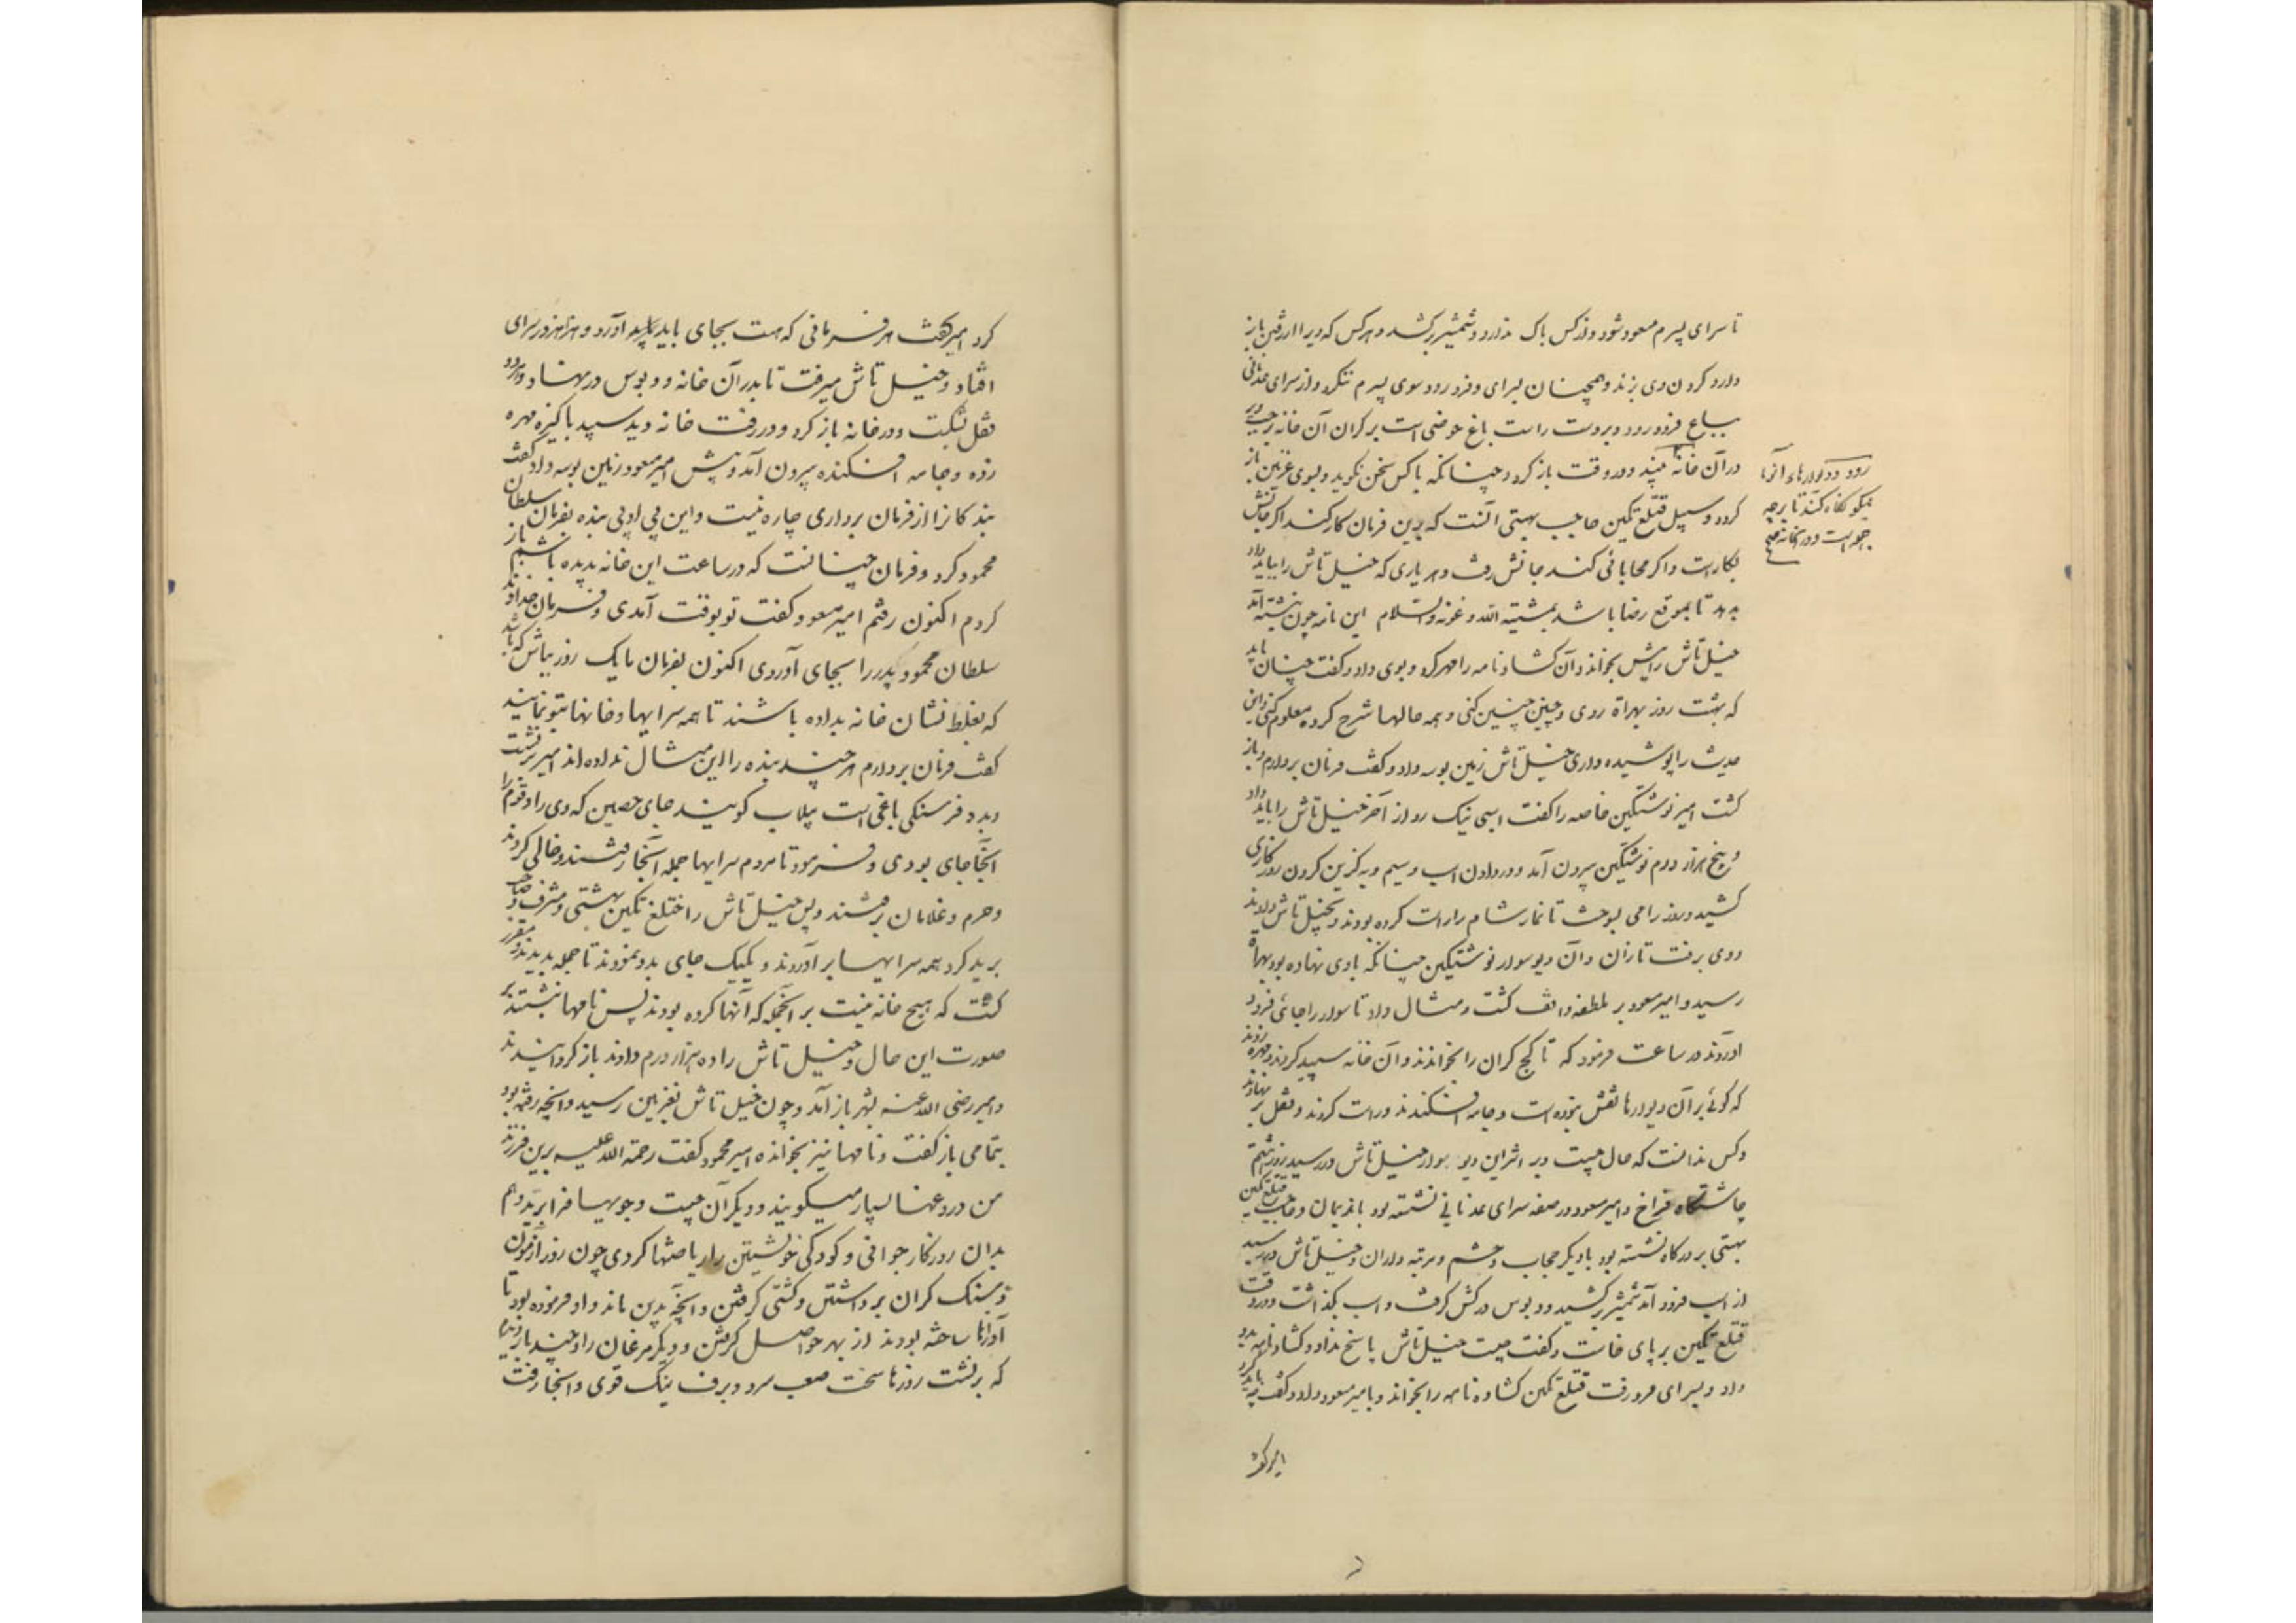 تا سرای پسرم مسعود شود و از کس باک ندارد و شمشیر برکشد و هرکس که ویرا از رفتن باز
دارد گردن وی بزند و همچنان بسرای و فرو رود و سوی پسرم ننکرد و از سرای عدنانی
بباغ فرو رود و بر دست راست باغ حوضی است بر کران آن خانه بر چپ
رود و دیوارهاء آنرا
نیکو نکاه کند تا بر چه
جمله است و در آنخانه چه
در آن خانه بیند و در وقت باز کردد چنانکه با کس سخن نکوید و بسوی غزنین باز
کردد و سبیل قتلغ تکین حاجب بهشتی آنست که برین فرمان کار کند اکر جانش
بکار است و اکر محابائی کند جانش رفت و هر یاری که خیلتاش را بباید داد
بدهد تا بموقع رضا باشد بمشیة الله و عونه والسلام این نامه چون نبشته آمد
خیلتاش را پیش بخواند و آن کشاد نامه را مهر کرد و بوی داد و کفت چنان باید
که بهشت روز بهراة روی و چنین چنین کنی و همه حالها شرح کرده معلوم کنی و این
حدیث را پوشیده داری خیلتاش زمین بوسه داد و کفت فرمان بردارم و باز
کشت امیر نوشتکین خاصه را کفت اسبی نیک رو از آخر خیلتاش را باید داد
و پنج هزار درم نوشتکین بیرون آمد و در دادن اسب و سیم و به کزین کردن روزکاری
کشید و روز را می بسوخت تا نماز شام را راست کرده بودند و بخیلتاش دادند
و وی برفت تازان و آن دیو سوار نوشتکین چنانکه با وی نهاده بود بهراة
رسید و امیر مسعود بر ملطفه واقف کشت و مثال داد تا سوار را جائی فرود
آوردند در ساعت فرمود که تا کچ کران را بخواندند و آن خانه سپید کردند و مهره زدند
که کوئی بر آن دیوارها نقش نبوده است و جامه افکندند و راست کردند و قفل بر نهادند
و کس ندانست که حال چیست و بر اثر این دیو سوار خیلتاش در رسید روز هشتم
چاشتکاه فراخ و امیر مسعود در صفه سرای عدنانی نشسته بود با ندیمان و حاجب قتلغ تکین
بهشتی بر درکاه نشسته بود با دیکر حجاب و حشم و مرتبه داران و خیلتاش در رسید
از اسب فرود آمد شمشیر برکشید و دبوس در کش کرفت و اسب بکذاشت و در وقت
قتلغ تکین بر پای خاست و کفت چیست خیلتاش پاسخ نداد و کشاد نامه بدو
داد و بسرای فرو رفت قتلغ تکین کشاده نامه را بخواند و بامیر مسعود داد و کفت چه باید کرد
امیر کفت
کرد امیر کفت هر فرمانی که هست بجای باید آورد و هزاهز در سرای
افتاد و خیلتاش میرفت تا بدر آن خانه و دبوس در نهاد و هر دو
قفل بشکست و در خانه باز کرد و در رفت خانه دید سپید پاکیزه مهره
زده و جامه افکنده بیرون آمد و پیش امیر مسعود زمین بوسه داد و کفت
بندکانرا از فرمان برداری چاره نیست و این بی ادبی بنده بفرمان سلطان
محمود کرد و فرمان چنانست که در ساعت این خانه بدیده باشم باز
کردم اکنون رفتم امیر مسعود کفت تو بوقت آمدی و فرمان خداوند
سلطان محمود پدر را بجای آوردی اکنون بفرمان ما یک روز بباش که باشد
که بغلط نشان خانه بداده باشند تا همه سرایها و خانها بتو نمایند
کفت فرمان بردارم هرچند بنده را این مثال نداده اند امیر برنشست
و بدو فرسنکی باغی است بیلاب کویند جای حصین که وی را و قوم را
آنجا جای بودی و فرمود تا مردم سرایها جمله آنجا رفتند و خالی کردند
و حرم و غلامان برفتند و پس خیلتاش را ختلغ تکین بهشتی و مشرف و صاحب
برید کرد همه سرایها برآوردند و یکیک جای بدو نمودند تا جمله بدید و مقرر
کشت که هیچ خانه نیست بر آنجمله که آنها کرده بودند پس نامها نبشتند بر
صورت این حال و خیلتاش را ده هزار درم دادند و باز کردانیدند
و امیر رضی الله عنه بشهر باز آمد و چون خیلتاش بغزنین رسید و آنچه رفته بود
بتمامی باز کفت و نامها نیز بخوانده امیر محمود کفت رحمة الله علیه برین فرزند
من دروغها بسیار میکویند و دیکر آن جست و جویها فرا برید و هم
بدان روزکار جوانی و کودکی خویشتن را ریاضتها کردی چون زور آزمودن
و سنک کران برداشتن و کشتی کرفتن و آنچه بدین ماند و او فرموده بود تا
آوازها ساخته بودند از بهر حواصل کرفتن و دیکر مرغان را و چند بار دیدم
که برنشست روزها سخت صعب سرد و برف نیک قوی و آنجا رفت